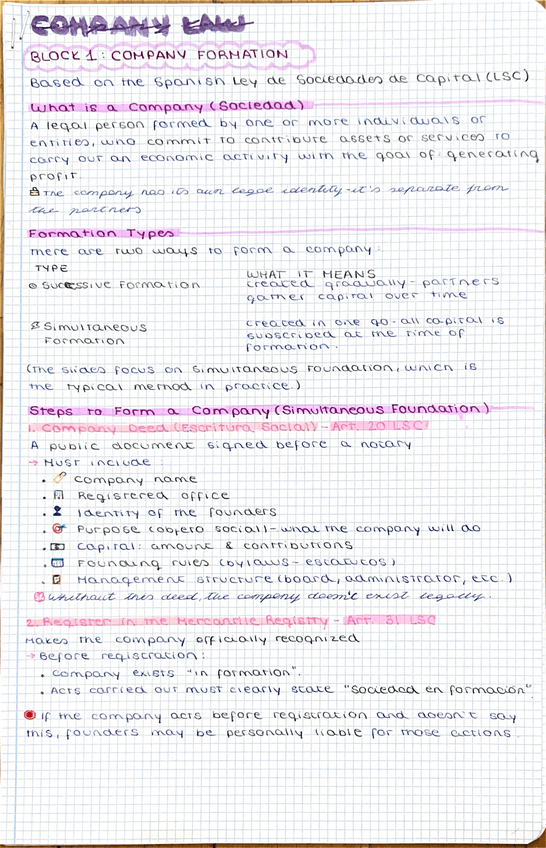 COMPANY LAW
BLOCK 1: COMPANY FORMATION
Based on the Spanish Ley de Sociedades de Capital (LSC)
What is a Company (Sociedad)
A legal person formed by one or more individuals or
entities, who commit to contribute assets or services to
carry out an economic activity with the goal of generating
profit.
The company has its own legal identity-it's separate from
the partners
Formation Types
There are two ways to form a company:
TYPE
WHAT IT MEANS
Successive Formation
created gradually- partners
gather capital over time
Simultaneous
Formation
created in one go-all capital is
subscribed at the time of
formation.
(The slides focus on Simultaneous Foundation, which is
the typical method in practice.)
Steps to Form a Company (Simultaneous Foundation)
1. Company Deed (Escritura Social) - Art. 20 LSC
A public document signed before a notary
→ Must include:
• Company name
• Registered office
• Identity of the founders
• Purpose (objeto social)-what the company will do
• Capital: amount & contributions
• Founding rules (bylaws- estatutos)
• Management structure (board, administrator, etc.)
Whithout this deed, the company doesn't exist legally.
2. Register in the Mercantile Registry - Art. 31 LSC
Makes the company officially recognized
→ Before registration:
• Company exists "in formation".
• Acts carried out must clearly state "Sociedad en formación".
If the company acts before registration and doesn't say
this, founders may be personally liable for those actions.